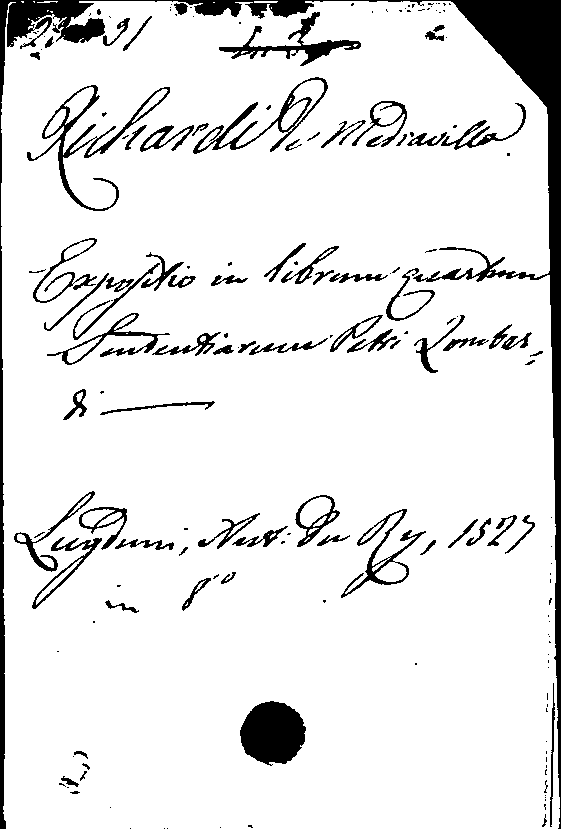 Richardi de Mediavilla.
Expositio in librum quartum
Sententiarum Petri Lombar-
di
Lugduni, Ant: Du Ry, 1527
in 8º